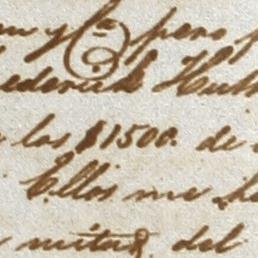 y Ca pero
ederick Hu
los $1500. de
Ellos me
mitad del